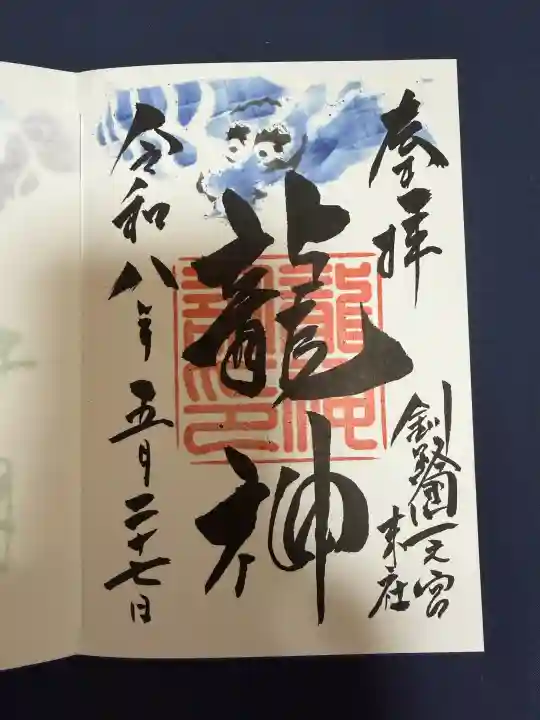 奉拝
釧路國一之宮
末社
龍神
令和八年五月二十七日